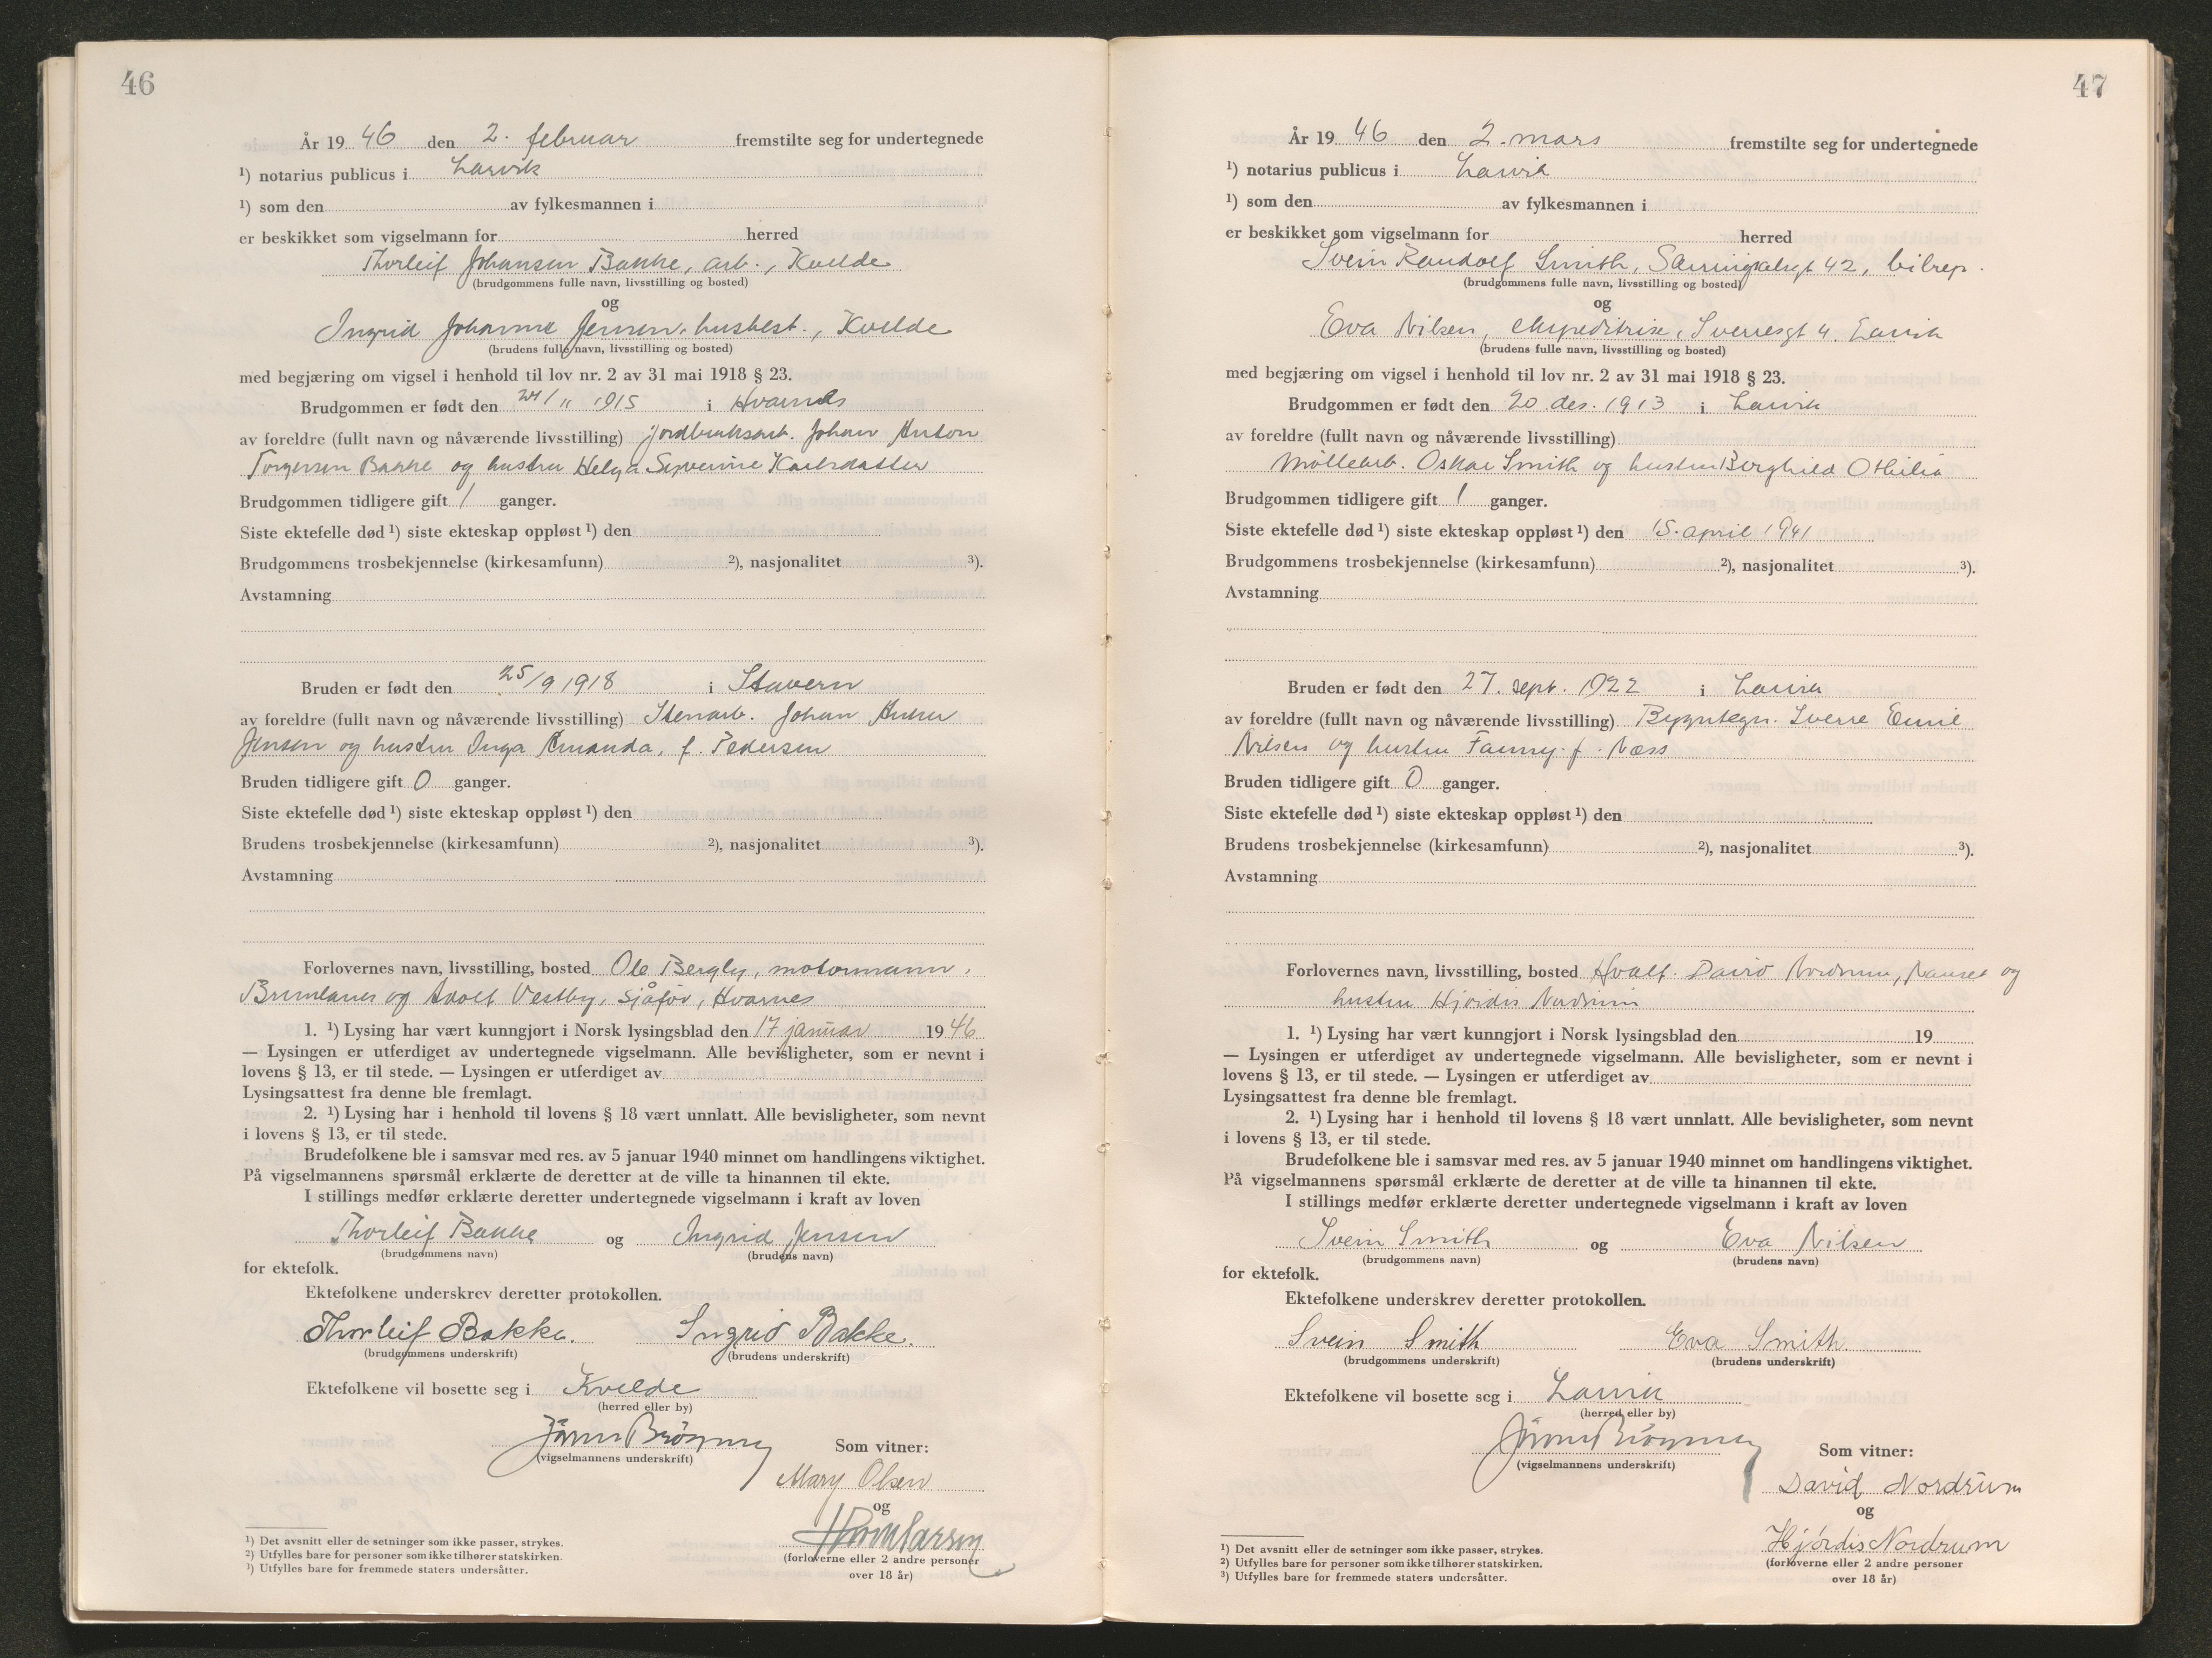 46
År 19 46 den 2. februar fremstilte seg for undertegnede
¹) notarius publicus i Larvik
¹) som den av fylkesmannen i
er beskikket som vigselmann for herred
Thorleif Johansen Bakke, arb., Kvelde
(brudgommens fulle navn, livsstilling og bosted)
og
Ingrid Johanne Jensen, husbest., Kvelde
(brudens fulle navn, livsstilling og bosted)
med begjæring om vigsel i henhold til lov nr. 2 av 31 mai 1918 § 23.
Brudgommen er født den 24/11 1915 i Hvarnes
av foreldre (fullt navn og nåværende livsstilling) Jordbruksarb. Johan Anton
Torgersen Bakke og hustru Helga Severine Karlsdatter
Brudgommen tidligere gift 1 ganger.
Siste ektefelle død ¹) siste ekteskap oppløst ¹) den
Brudgommens trosbekjennelse (kirkesamfunn) ²), nasjonalitet ³).
Avstamning
Bruden er født den 25/9 1918 i Stavern
av foreldre (fullt navn og nåværende livsstilling) Stenarb. Johan Anker
Jensen og hustru Inga Amanda, f. Pedersen
Bruden tidligere gift 0 ganger.
Siste ektefelle død ¹) siste ekteskap oppløst ¹) den
Brudens trosbekjennelse (kirkesamfunn) ²), nasjonalitet ³).
Avstamning
Forlovernes navn, livsstilling, bosted Ole Bergly, motormann,
Brunlanes og Adolf Vestby, sjåfør, Hvarnes
1. ¹) Lysing har vært kunngjort i Norsk lysingsblad den 17 januar 1946
— Lysingen er utferdiget av undertegnede vigselmann. Alle bevisligheter, som er nevnt i
lovens § 13, er til stede. — Lysingen er utferdiget av
Lysingsattest fra denne ble fremlagt.
2. ¹) Lysing har i henhold til lovens § 18 vært unnlatt. Alle bevisligheter, som nevnt
i lovens § 13, er til stede.
Brudefolkene ble i samsvar med res. av 5 januar 1940 minnet om handlingens viktighet.
På vigselmannens spørsmål erklærte de deretter at de ville ta hinannen til ekte.
I stillings medfør erklærte deretter undertegnede vigselmann i kraft av loven
Thorleif Bakke og Ingrid Jensen
(brudgommens navn) (brudens navn)
for ektefolk.
Ektefolkene underskrev deretter protokollen.
Thorleif Bakke. Ingrid Bakke.
(brudgommens underskrift) (brudens underskrift)
Ektefolkene vil bosette seg i Kvelde
(herred eller by)
(vigselmannens underskrift) Som vitner:
Mary Olsen
og
(forloverne eller 2 andre personer
over 18 år)
¹) Det avsnitt eller de setninger som ikke passer, strykes.
²) Utfylles bare for personer som ikke tilhører statskirken.
³) Utfylles bare for fremmede staters undersåtter.
47
År 19 46 den 2. mars fremstilte seg for undertegnede
¹) notarius publicus i Larvik
¹) som den av fylkesmannen i
er beskikket som vigselmann for herred
Svein Randolf Smith, 42, bilrep.
(brudgommens fulle navn, livsstilling og bosted)
og
Eva Nilsen, ekspeditrise, Sverresgt 4. Larvik
(brudens fulle navn, livsstilling og bosted)
med begjæring om vigsel i henhold til lov nr. 2 av 31 mai 1918 § 23.
Brudgommen er født den 20 des. 1913 i Larvik
av foreldre (fullt navn og nåværende livsstilling)
Møllearb. Oskar Smith og hustru Berghild Othilia
Brudgommen tidligere gift 1 ganger.
Siste ektefelle død ¹) siste ekteskap oppløst ¹) den 15. april 1941
Brudgommens trosbekjennelse (kirkesamfunn) ²), nasjonalitet ³).
Avstamning
Bruden er født den 27. sept. 1922 i Larvik
av foreldre (fullt navn og nåværende livsstilling) Sverre Emil
Nilsen og hustru Fanny f. Næss
Bruden tidligere gift 0 ganger.
Siste ektefelle død ¹) siste ekteskap oppløst ¹) den
Brudens trosbekjennelse (kirkesamfunn) ²), nasjonalitet ³).
Avstamning
Forlovernes navn, livsstilling, bosted Hvalf. David Nordrum, Nanset og
hustru Hjørdis Nordrum
1. ¹) Lysing har vært kunngjort i Norsk lysingsblad den 19
— Lysingen er utferdiget av undertegnede vigselmann. Alle bevisligheter, som er nevnt i
lovens § 13, er til stede. — Lysingen er utferdiget av
Lysingsattest fra denne ble fremlagt.
2. ¹) Lysing har i henhold til lovens § 18 vært unnlatt. Alle bevisligheter, som nevnt
i lovens § 13, er til stede.
Brudefolkene ble i samsvar med res. av 5 januar 1940 minnet om handlingens viktighet.
På vigselmannens spørsmål erklærte de deretter at de ville ta hinannen til ekte.
I stillings medfør erklærte deretter undertegnede vigselmann i kraft av loven
Svein Smith og Eva Nilsen
(brudgommens navn) (brudens navn)
for ektefolk.
Ektefolkene underskrev deretter protokollen.
Svein Smith Eva Smith
(brudgommens underskrift) (brudens underskrift)
Ektefolkene vil bosette seg i Larvik
(herred eller by)
(vigselmannens underskrift) Som vitner:
David Nordrum
og
Hjørdis Nordrum
(forloverne eller 2 andre personer
over 18 år)
¹) Det avsnitt eller de setninger som ikke passer, strykes.
²) Utfylles bare for personer som ikke tilhører statskirken.
³) Utfylles bare for fremmede staters undersåtter.